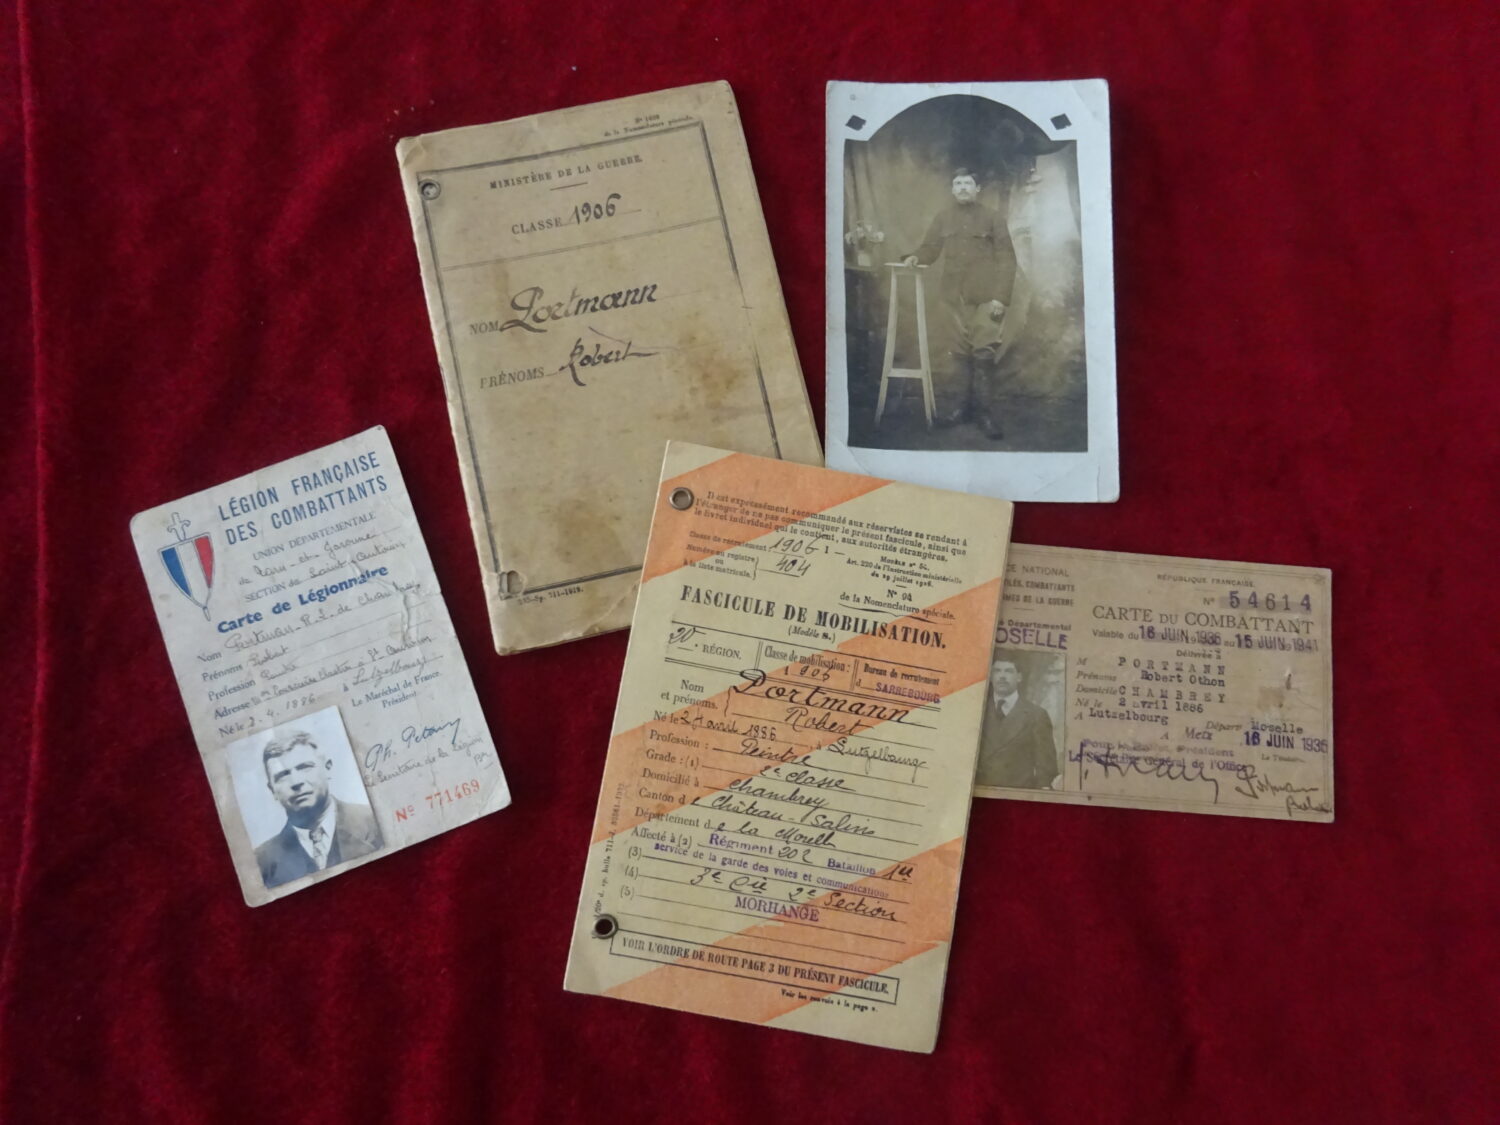 N° 1608
de la Nomenclature générale.
MINISTÈRE DE LA GUERRE.
CLASSE 1906
NOM Portmann
PRÉNOMS Robert
LÉGION FRANÇAISE
DES COMBATTANTS
UNION DÉPARTEMENTALE
de Tarn-et-Garonne
SECTION de Saint-Antonin
Carte de Légionnaire
Nom Portman
Prénoms Robert
Profession Peintre
Adresse
Né le 2.4.1886 à Lutzelbourg
Le Maréchal de France,
Président,
Ph. Pétain
Le Secrétaire de la Légion
N° 771469
Il est expressément recommandé aux réservistes se rendant à
l'étranger de ne pas communiquer le présent fascicule, ainsi que
le livret individuel qui le contient, aux autorités étrangères.
Classe de recrutement 1906 I -
Numéro au registre
ou
à la liste matricule. 404
Modèle n° 54.
Art. 220 de l'Instruction ministérielle
du 29 juillet 1926.
N° 94
de la Nomenclature spéciale.
FASCICULE DE MOBILISATION.
(Modèle S.)
20e RÉGION.
Classe de mobilisation :
1906
Bureau de recrutement
d SARREBOURG
Nom
et prénoms. Portmann
Robert
Né le 2 avril 1886, à Lutzelbourg
Profession : Peintre
Grade : (1) 2e classe
Domicilié à Chambrey
Canton de Château-Salins
Département de la Moselle
Affecté à (2) Régiment 202 Bataillon
(3) service de la garde des voies et communications
(4) 3e Cie 2e Section
(5) MORHANGE
VOIR L'ORDRE DE ROUTE PAGE 3 DU PRÉSENT FASCICULE.
Voir les renvois à la page 2.
CE NATIONAL
LÉS, COMBATTANTS
MES DE LA GUERRE
Départemental
MOSELLE
RÉPUBLIQUE FRANÇAISE
N° 54614
CARTE DU COMBATTANT
Valable du 16 JUIN 1936 au 15 JUIN 1941
Délivrée à
M PORTMANN
Prénoms Robert Othon
Domicile CHAMBREY
Né le 2 avril 1886
A Lutzelbourg Départ Moselle
A Metz 16 JUIN 1936
Pour le Préfet, Président
Le Secrétaire Général de l'Office
Le Titulaire